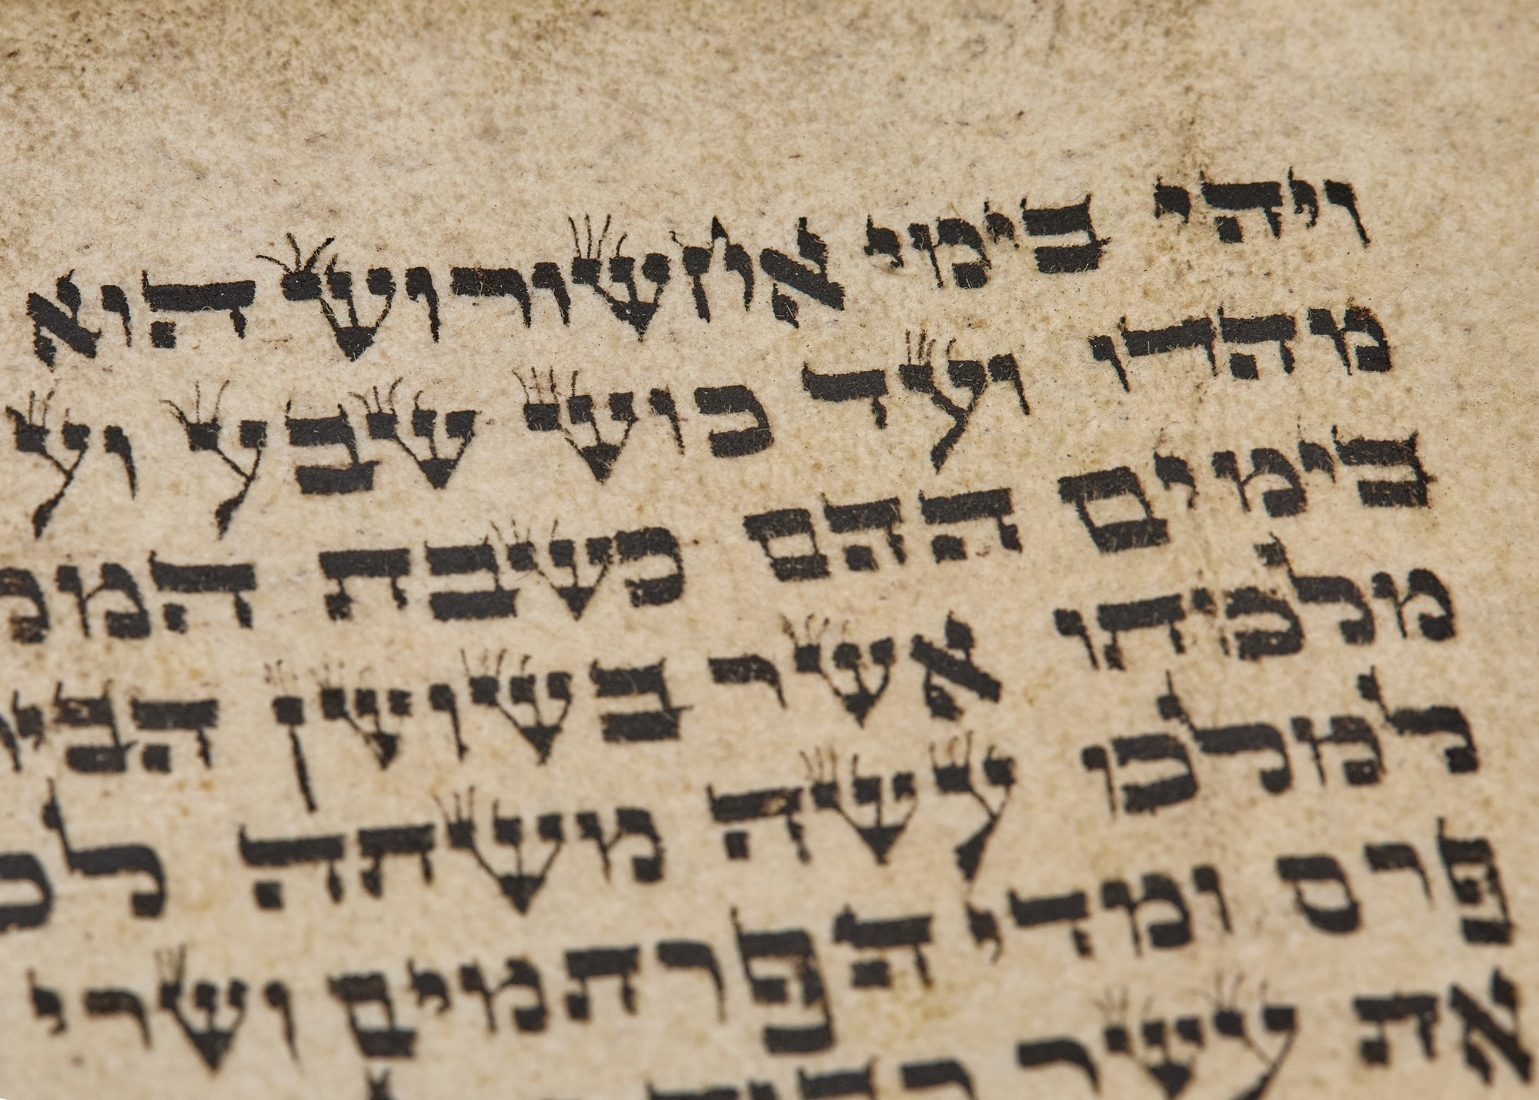 ויהי בימי אחשורוש הוא
מהדו ועד כוש שבע
בימים ההם כשבת
מלכותו אשר בשושן
למלכו עשה משתה
פרס ומדי הפרתמים ושרי
את עשר